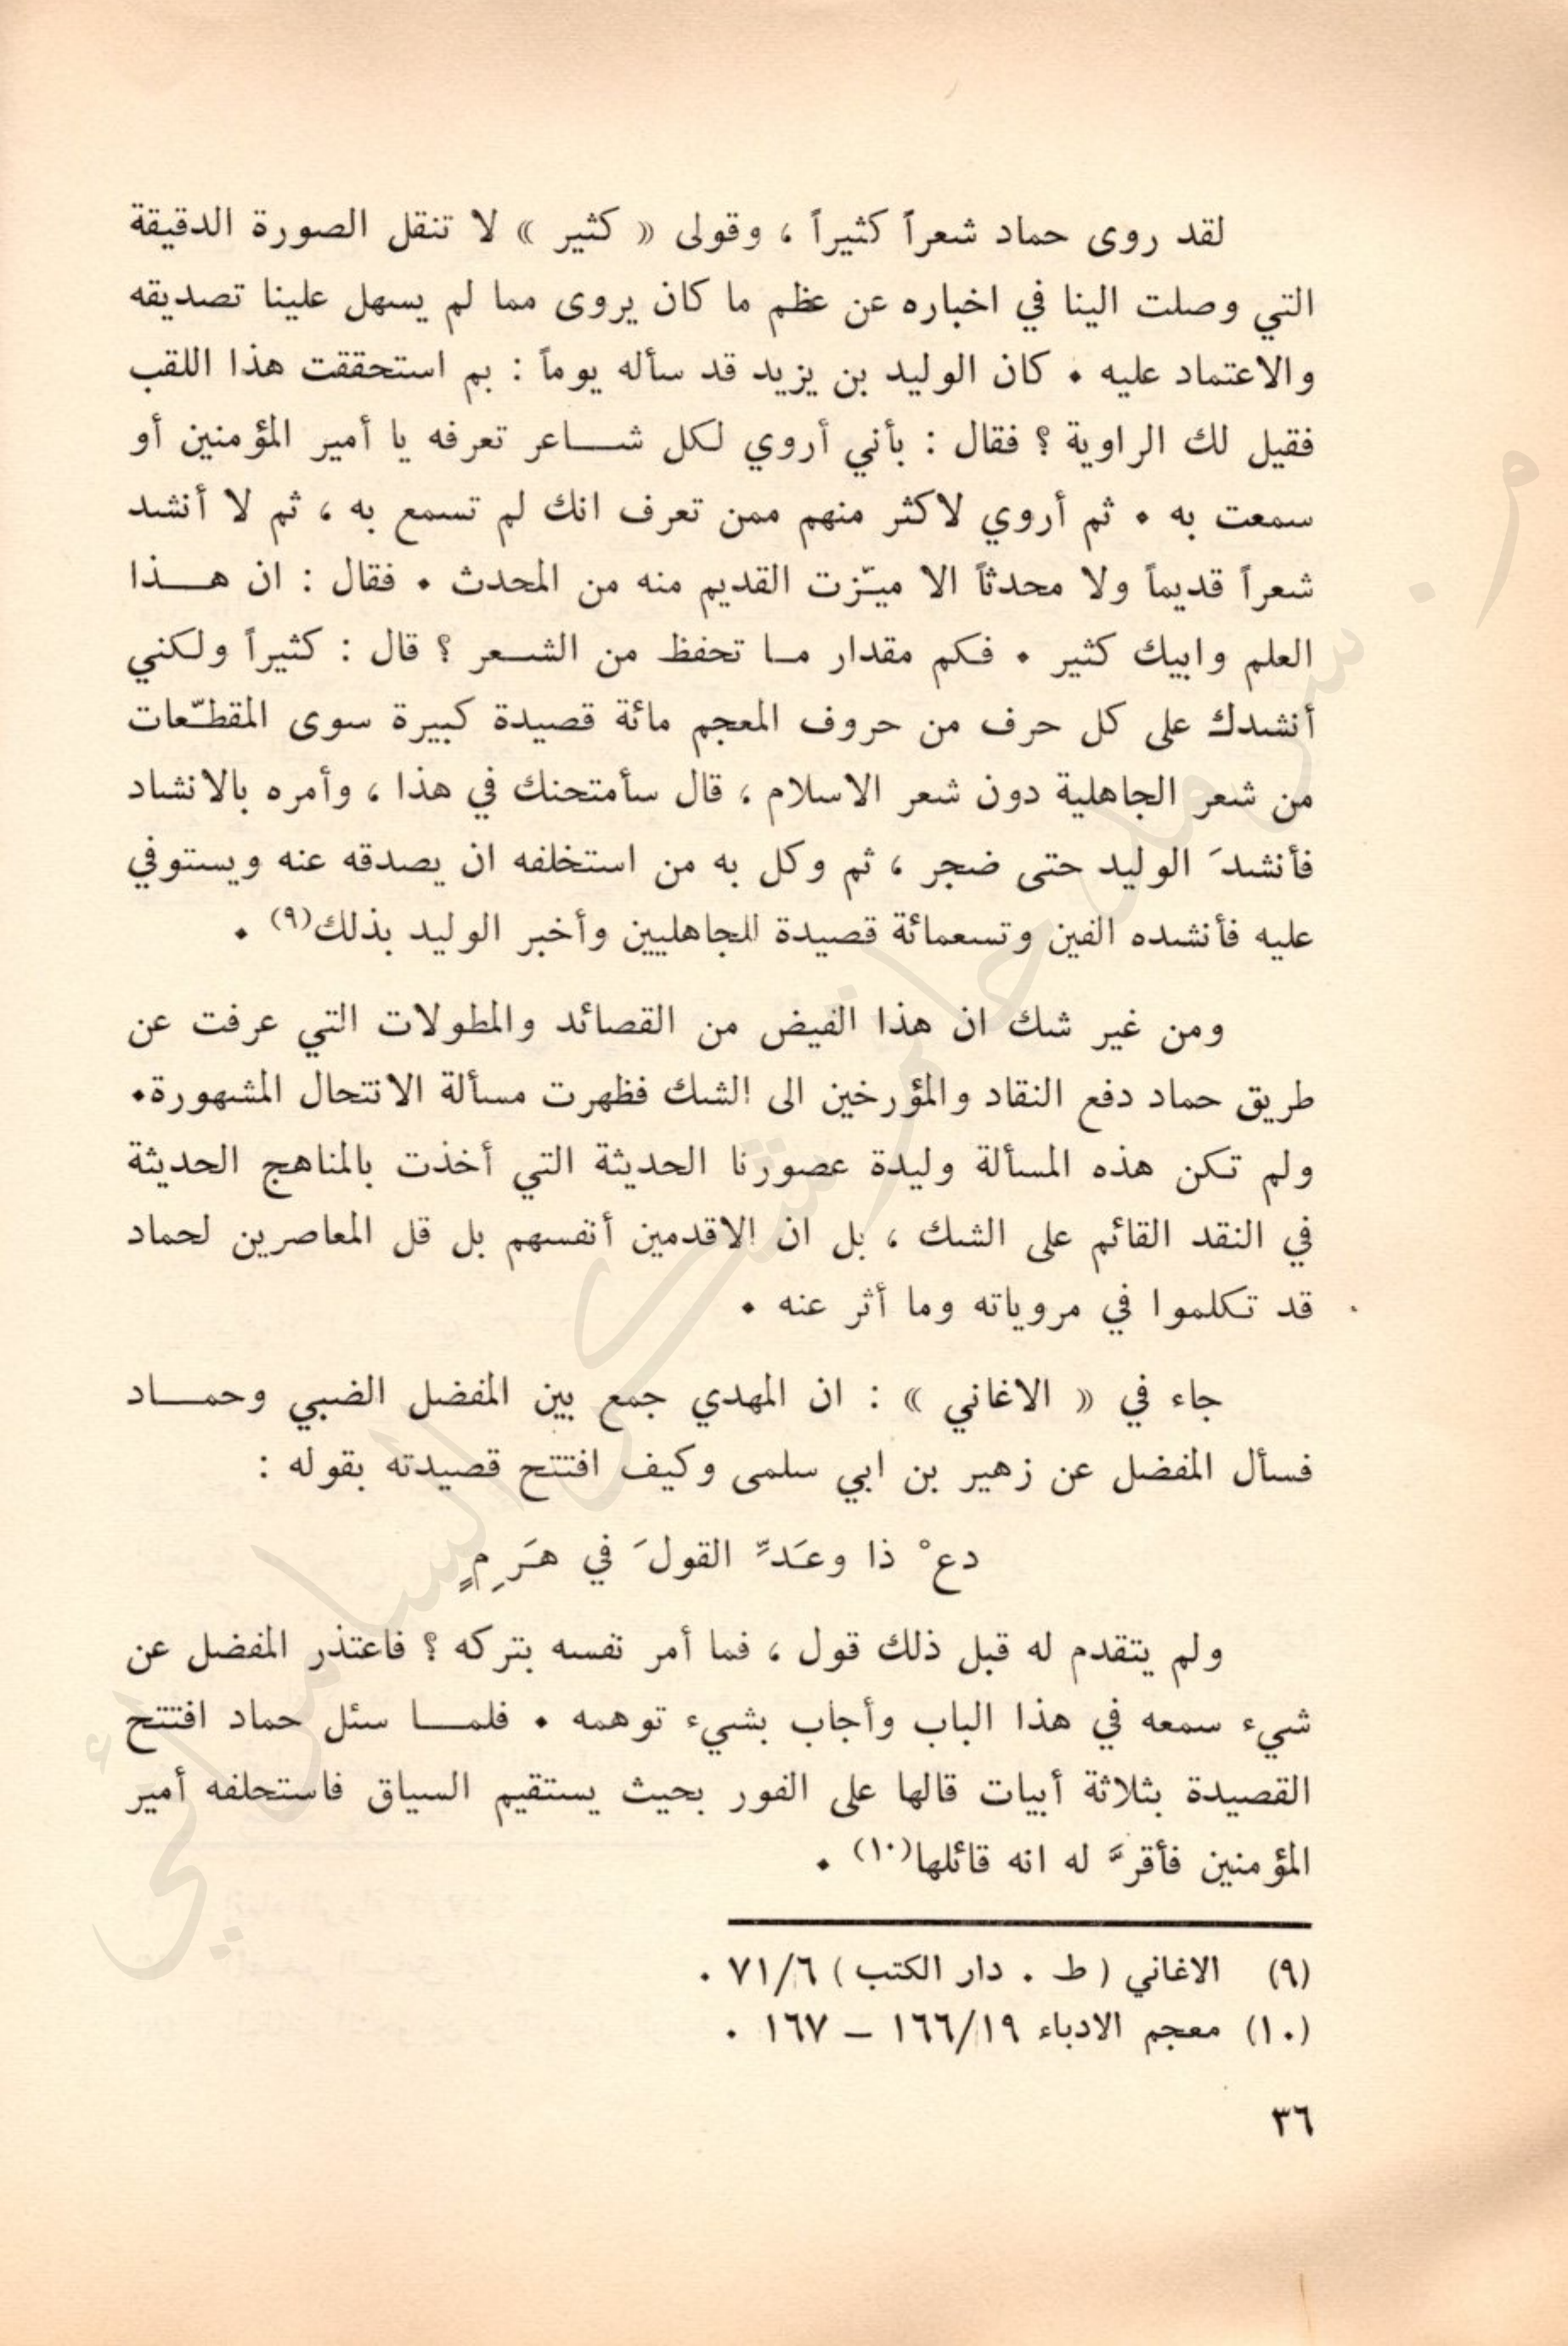 لقد روى حماد شعراً كثيراً ، وقولى « كثير » لا تنقل الصورة الدقيقة
التي وصلت الينا في اخباره عن عظم ما كان يروى مما لم يسهل علينا تصديقه
والاعتماد عليه . كان الوليد بن يزيد قد سأله يوماً : بم استحققت هذا اللقب
فقيل لك الراوية ؟ فقال : بأني أروي لكل شاعر تعرفه يا أمير المؤمنين أو
سمعت به . ثم أروي لاكثر منهم ممن تعرف انك لم تسمع به ، ثم لا أنشد
شعراً قديماً ولا محدثاً الا ميّزت القديم منه من المحدث . فقال : ان هذا
العلم وابيك كثير . فكم مقدار ما تحفظ من الشعر ؟ قال : كثيراً ولكني
أنشدك على كل حرف من حروف المعجم مائة قصيدة كبيرة سوى المقطّعات
من شعر الجاهلية دون شعر الاسلام ، قال سأمتحنك في هذا ، وأمره بالانشاد
فأنشدَ الوليد حتى ضجر ، ثم وكل به من استخلفه ان يصدقه عنه ويستوفي
عليه فأنشده الفين وتسعمائة قصيدة للجاهليين وأخبر الوليد بذلك(٩) .
ومن غير شك ان هذا الفيض من القصائد والمطولات التي عرفت عن
طريق حماد دفع النقاد والمؤرخين الى الشك فظهرت مسألة الانتحال المشهورة.
ولم تكن هذه المسألة وليدة عصورنا الحديثة التي أخذت بالمناهج الحديثة
في النقد القائم على الشك ، بل ان الاقدمين أنفسهم بل قل المعاصرين لحماد
قد تكلموا في مروياته وما أثر عنه .
جاء في « الاغاني » : ان المهدي جمع بين المفضل الضبي وحماد
فسأل المفضل عن زهير بن ابي سلمى وكيف افتتح قصيدته بقوله :
دعْ ذا وعَدِّ القولَ في هَرِمٍ
ولم يتقدم له قبل ذلك قول ، فما أمر نفسه بتركه ؟ فاعتذر المفضل عن
شيء سمعه في هذا الباب وأجاب بشيء توهمه . فلما سئل حماد افتتح
القصيدة بثلاثة أبيات قالها على الفور بحيث يستقيم السياق فاستحلفه أمير
المؤمنين فأقرَّ له انه قائلها(١٠) .
(٩) الاغاني ( ط . دار الكتب ) ٧١/٦ .
(١٠) معجم الادباء ١٦٦/١٩ – ١٦٧ .
٣٦